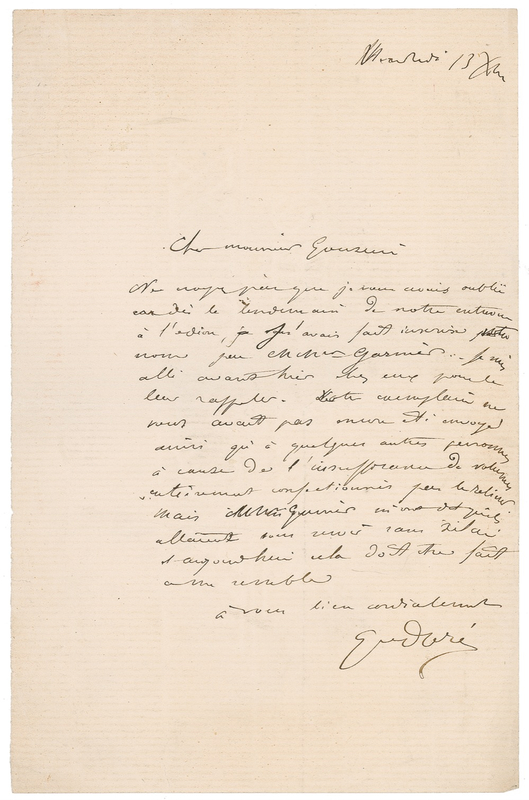 13 Xbre
Cher monsieur
Ne croyez pas que je vous avais oublié
car dès le lendemain de notre entrevue
à l'odéon, je j'avais fait inscrire votre
nom par Garnier. Je suis
allé avant hier chez eux pour le
leur rappeler. Votre exemplaire ne
vous avait pas encore été envoyé
ainsi qu'à quelques autres personnes
à cause de l'insuffisance de volumes
entièrement confectionnés par le relieur
mais Garnier m'ont dit qu'ils
allaient vous servir sans délai
et aujourd'hui cela doit être fait
ce me semble
à vous bien cordialement
Gve Doré